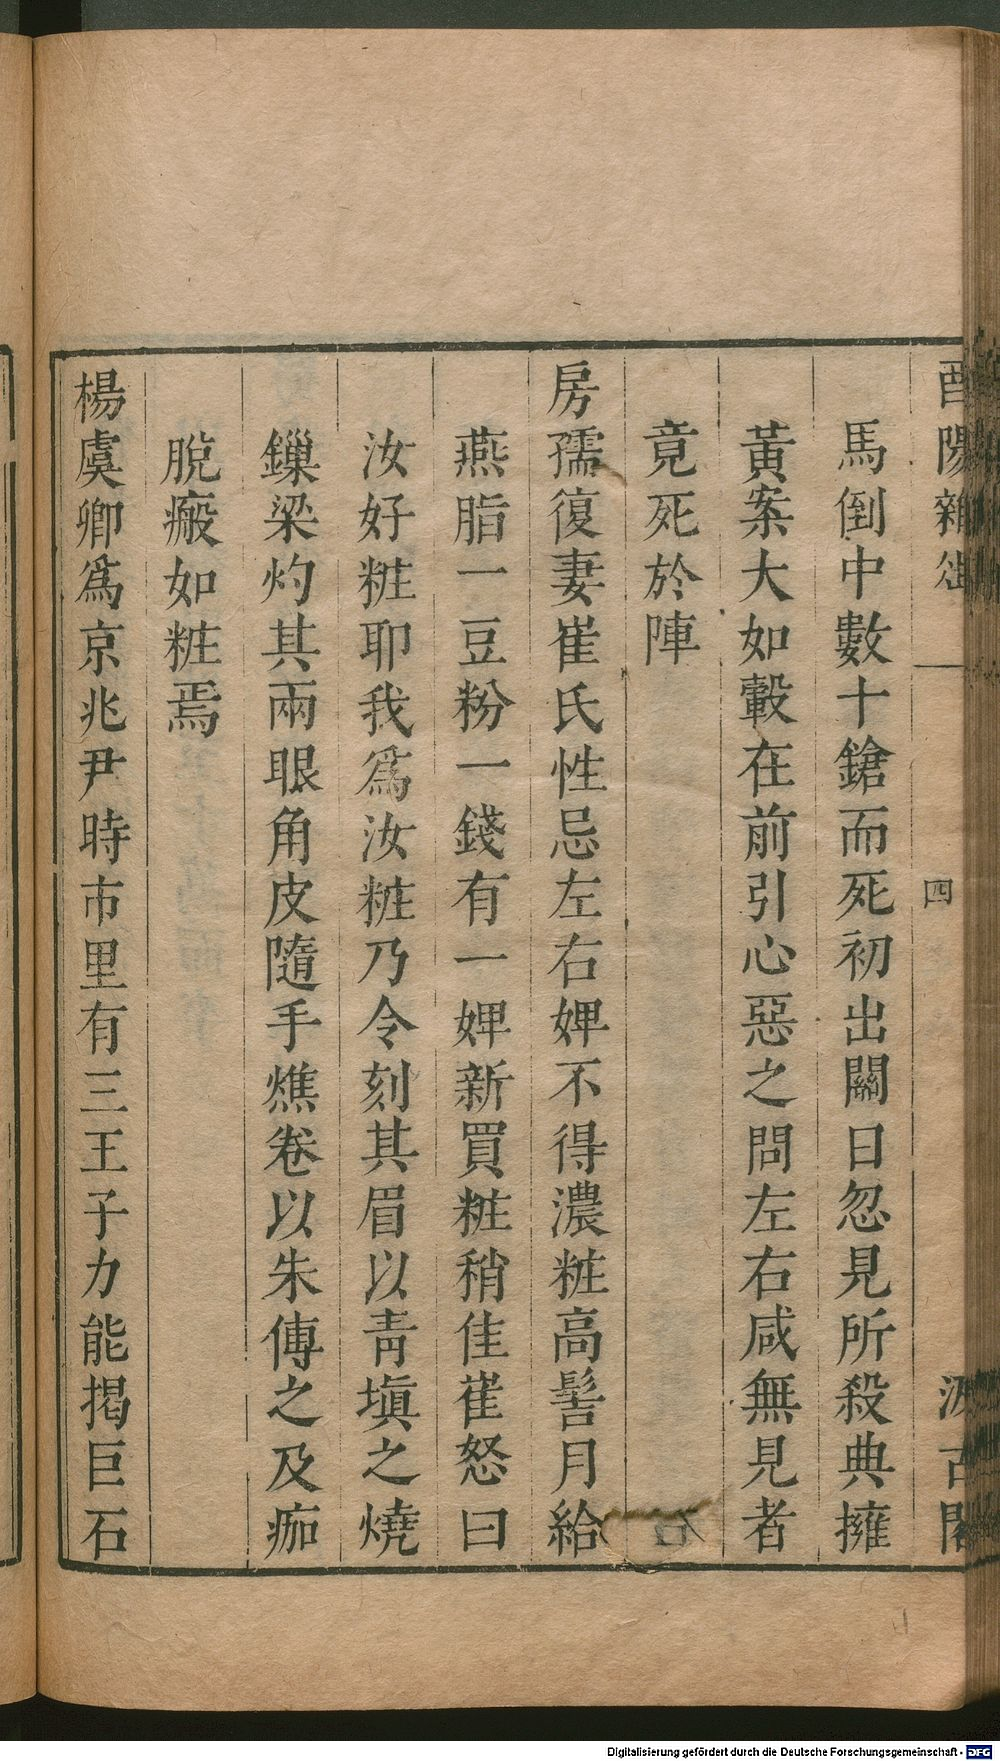 酉陽雜俎
四
汲古閣
馬倒中數十鎗而死初出關日忽見所殺典擁
黃案大如轂在前引心惡之問左右咸無見者
竟死於陣
房孺復妻崔氏性忌左右婢不得濃粧高髻月給
燕脂一豆粉一錢有一婢新買粧稍佳崔怒曰
汝好粧耶我為汝粧乃令刻其眉以青塡之燒
鏁梁灼其兩眼角皮隨手燋卷以朱傅之及痂
脫瘢如粧焉
楊虞卿為京兆尹時市里有三王子力能揭巨石
Digitalisierung gefördert durch die Deutsche Forschungsgemeinschaft - DFG